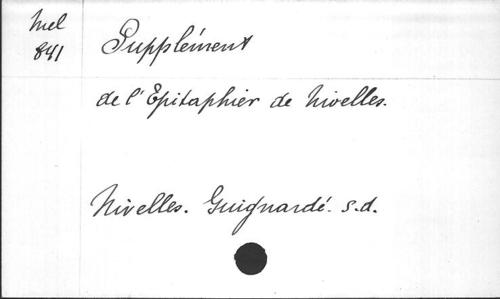 Mel
841
Supplément
de l'Epitaphier de Nivelles.
Nivelles. Guignardé. s.d.